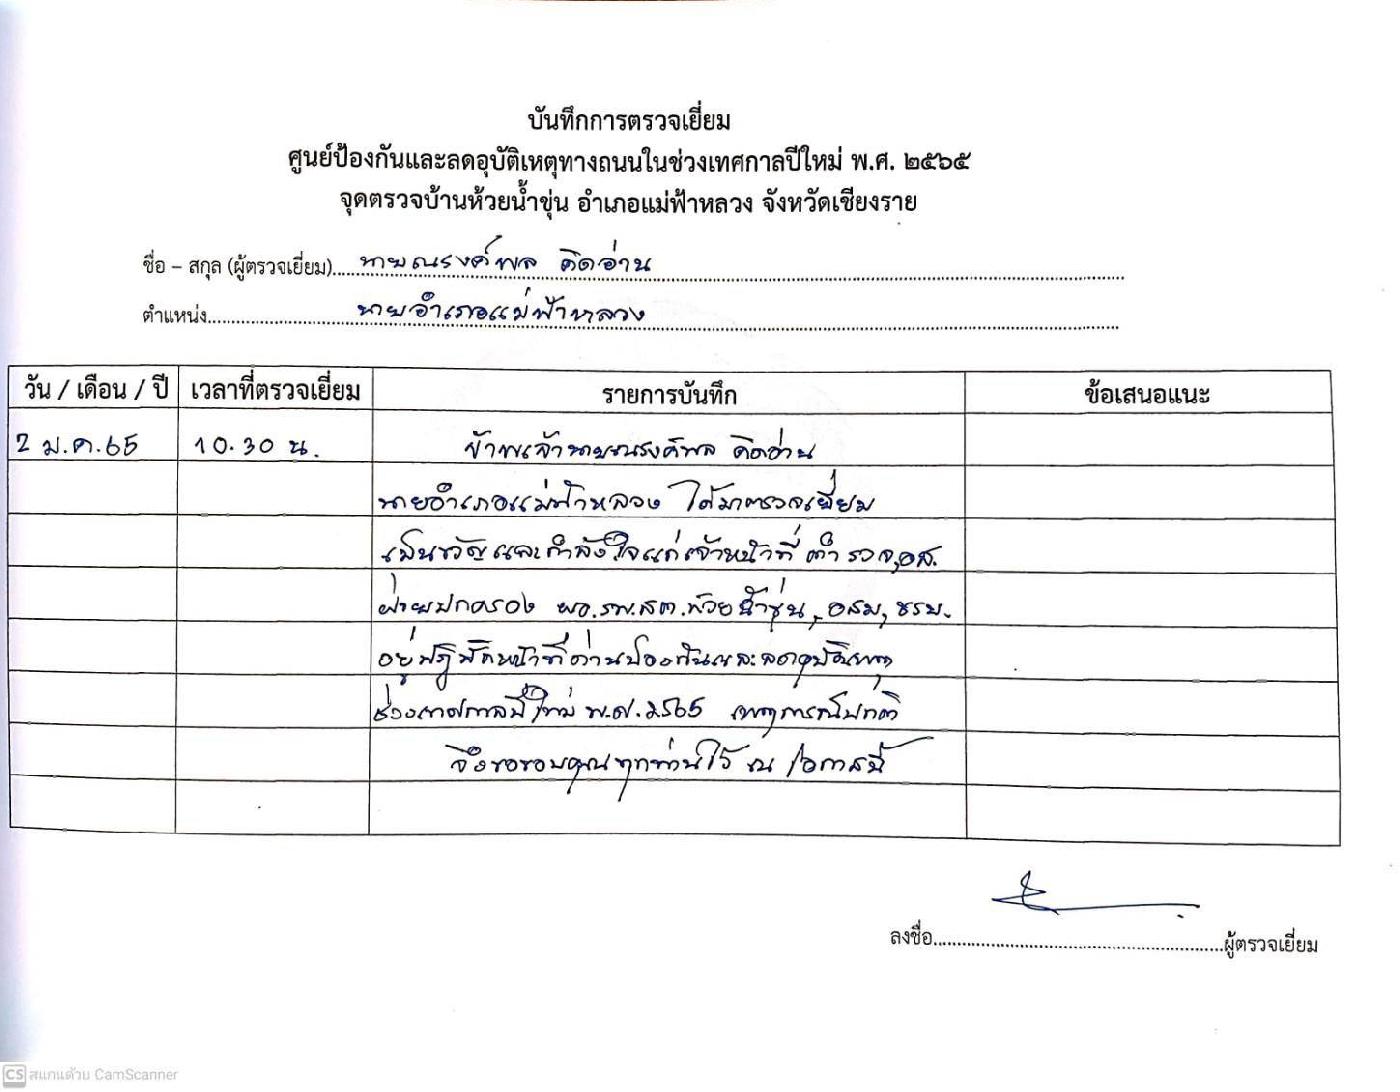 บันทึกการตรวจเยี่ยม
ศูนย์ป้องกันและลดอุบัติเหตุทางถนนในช่วงเทศกาลปีใหม่ พ.ศ. ๒๕๖๕
จุดตรวจบ้านห้วยน้ำขุ่น อำเภอแม่ฟ้าหลวง จังหวัดเชียงราย
ชื่อ – สกุล (ผู้ตรวจเยี่ยม) นายณรงค์พล คิดอ่าน
ตำแหน่ง นายอำเภอแม่ฟ้าหลวง
วัน / เดือน / ปี เวลาที่ตรวจเยี่ยม รายการบันทึก ข้อเสนอแนะ
2 ม.ค.65 10.30 น. ข้าพเจ้านายณรงค์พล คิดอ่าน
นายอำเภอแม่ฟ้าหลวง ได้มาตรวจเยี่ยม
เป็นขวัญและกำลังใจแก่เจ้าหน้าที่ ตำรวจ,อส.
ฝ่ายปกครอง ผอ.รพ.สต.ห้วยน้ำขุ่น, อสม, ชรบ.
อยู่ปฏิบัติหน้าที่ด่านป้องกันและลดอุบัติเหตุ
ช่วงเทศกาลปีใหม่ พ.ศ.2565 เหตุการณ์ปกติ
จึงขอขอบคุณทุกท่านไว้ ณ โอกาสนี้
ลงชื่อ ผู้ตรวจเยี่ยม
CS สแกนด้วย CamScanner